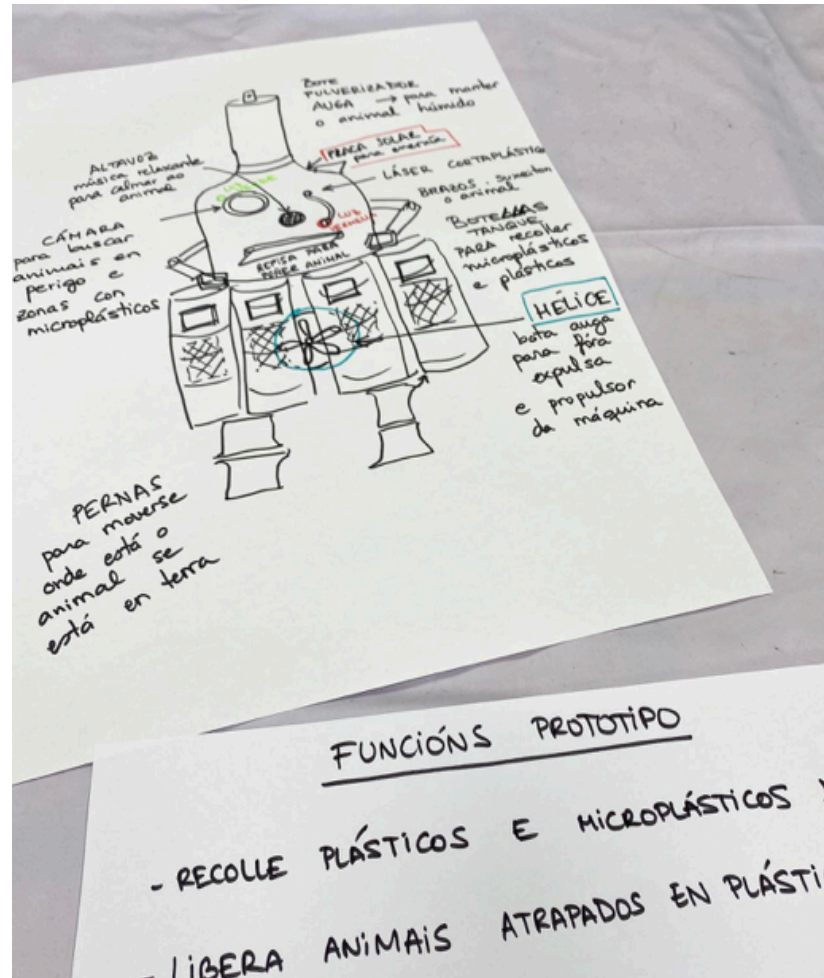 BOTE
PULVERIZADOR
AUGA → para manter
o animal húmido
PRACA SOLAR
para enerxía
ALTAVOZ
música relaxante
para calmar ao
animal
LÁSER CORTAPLÁSTICO
BRAZOS: sujeitan
o animal
CÁMARA
para buscar
animais en
perigo e
zonas con
microplásticos
LUZ
VERMELLA
REPISA PARA
POÑER ANIMAL
BOTELLAS
TANQUE
PARA recoller
microplásticos
e plásticos
HÉLICE
bota auga
para fóra
expulsa
e propulsor
da máquina
PERNAS
para moverse
onde está o
animal se
está en terra
FUNCIÓNS PROTOTIPO
- RECOLLE PLÁSTICOS E MICROPLÁSTICOS
- LIBERA ANIMAIS ATRAPADOS EN PLÁSTI